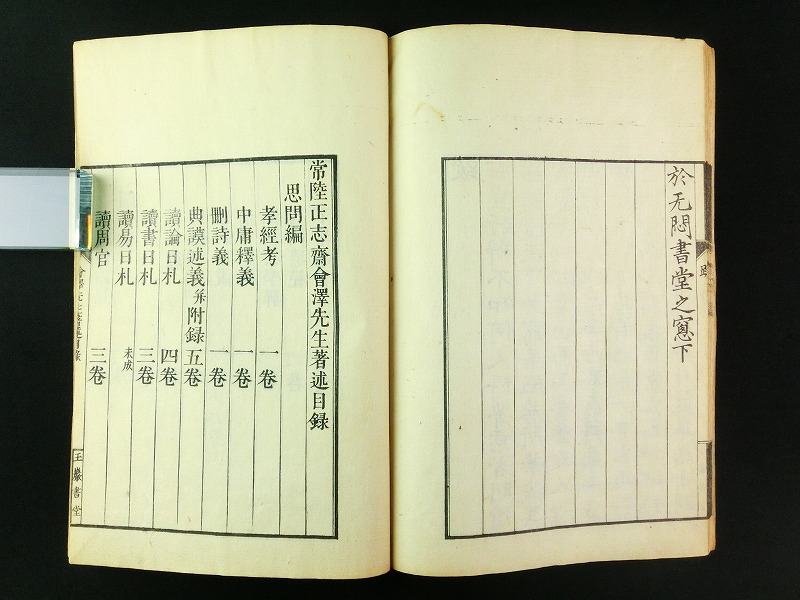 於无悶書堂之窻下
跋
常陸正志齋會澤先生著述目録
思問編
孝經考 一卷
中庸釋義 一卷
刪詩義 一卷
典謨述義并附録 五卷
讀論日札 四卷
讀書日札 三卷
讀易日札 未成
讀周官 三卷
會澤先生著述目錄
玉巖書堂